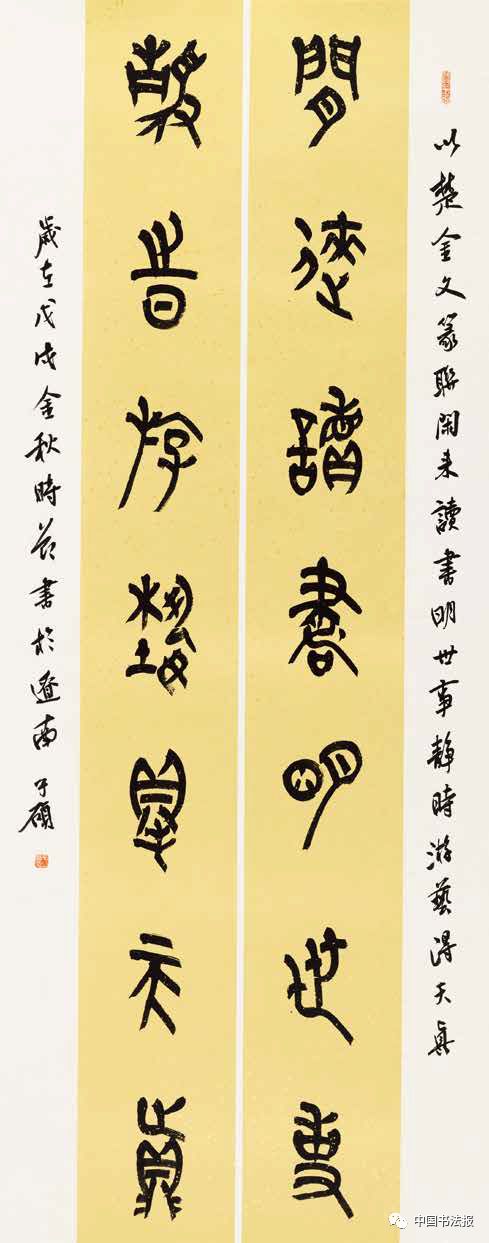 以楚金文篆聯閑来讀書明世事静時游藝得天真
閒逨讀書明世事
静時游藝得天真
歲在戊戌金秋時節書於遼南于碩
中国书法报